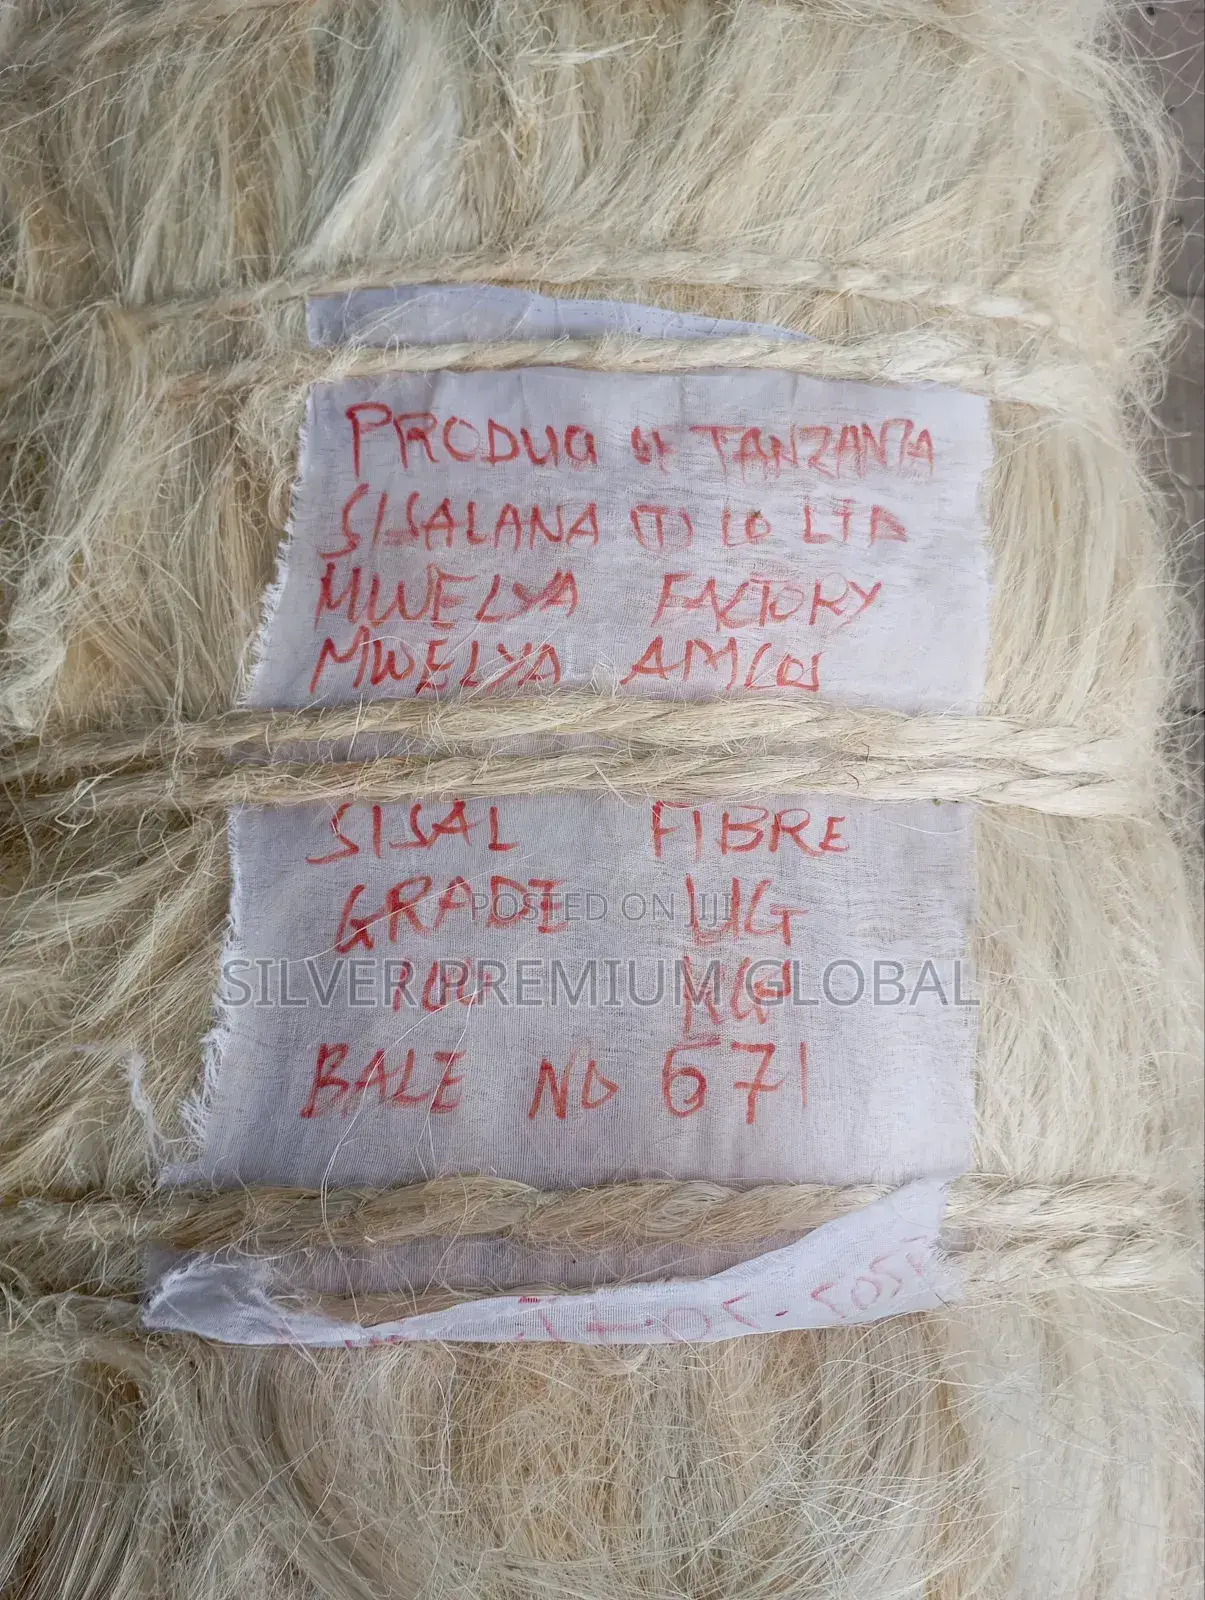 PRODUCT OF TANZANIA
SISALANA (T) CO LTD
MWELYA FACTORY
MWELYA AMCOS
SISAL FIBRE
GRADE UG
POSTED ON JIJI
100 KG
SILVER PREMIUM GLOBAL
BALE NO 671